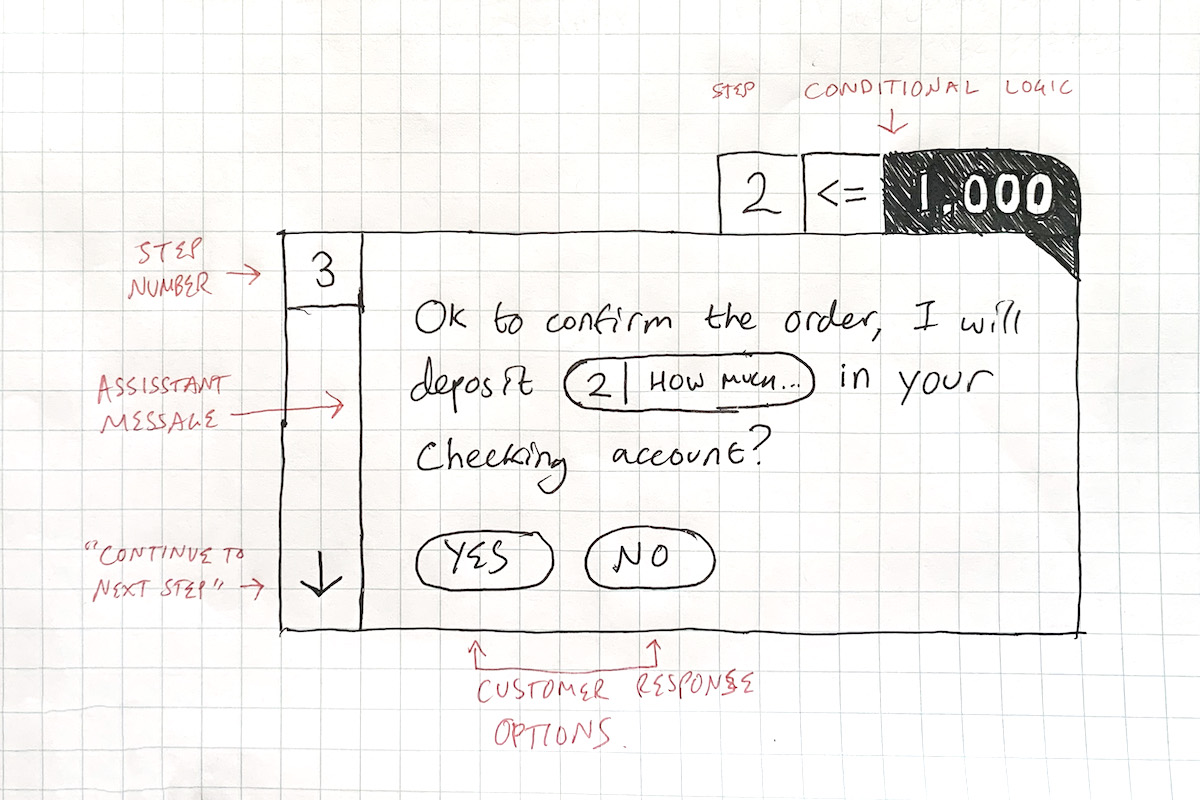 STEP CONDITIONAL LOGIC
2 <= 1,000
STEP
NUMBER
3
Ok to confirm the order, I will
deposit 2 | HOW MUCH... in your
checking account?
ASSISSTANT
MESSAGE
YES NO
"CONTINUE TO
NEXT STEP"
CUSTOMER RESPONSE
OPTIONS.